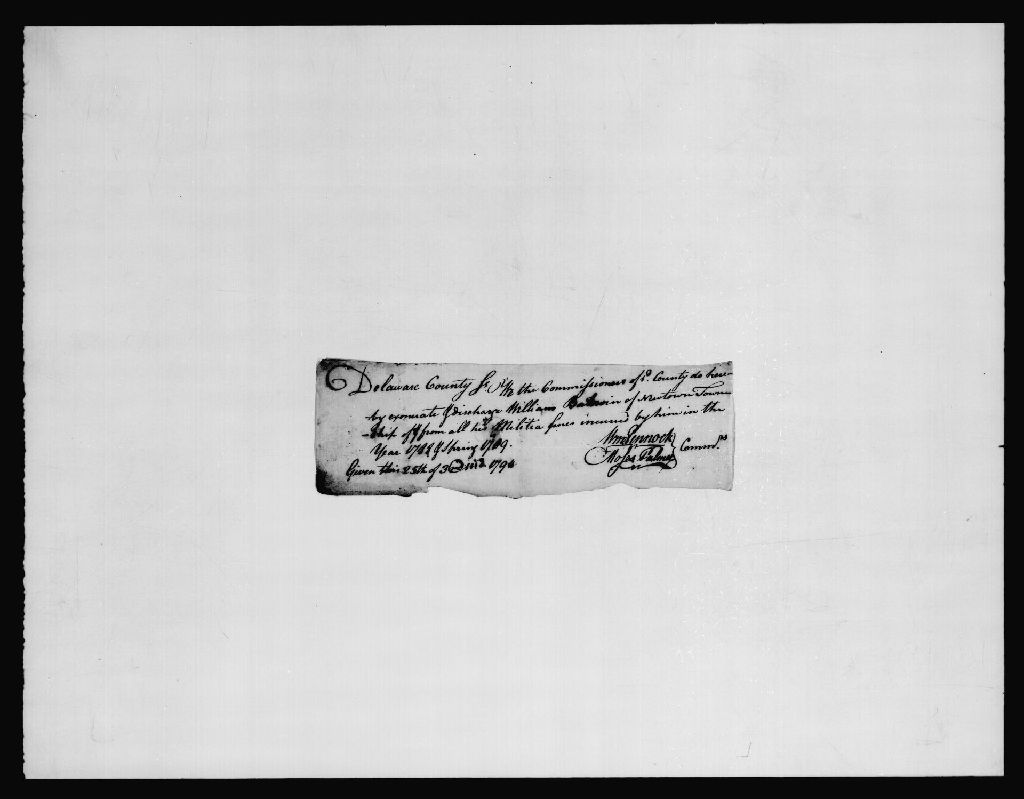 Delaware County Ss. We the Commissioners of sd. County do here-
by exonerate & discharge William Baldwin of Newtown Town-
-ship of & from all his Militia fines incurred by him in the
Year 1788 & Spring 1789.
Given this 25th of 3d 1790
Wm Pennock
Moses Palmer
Commrs